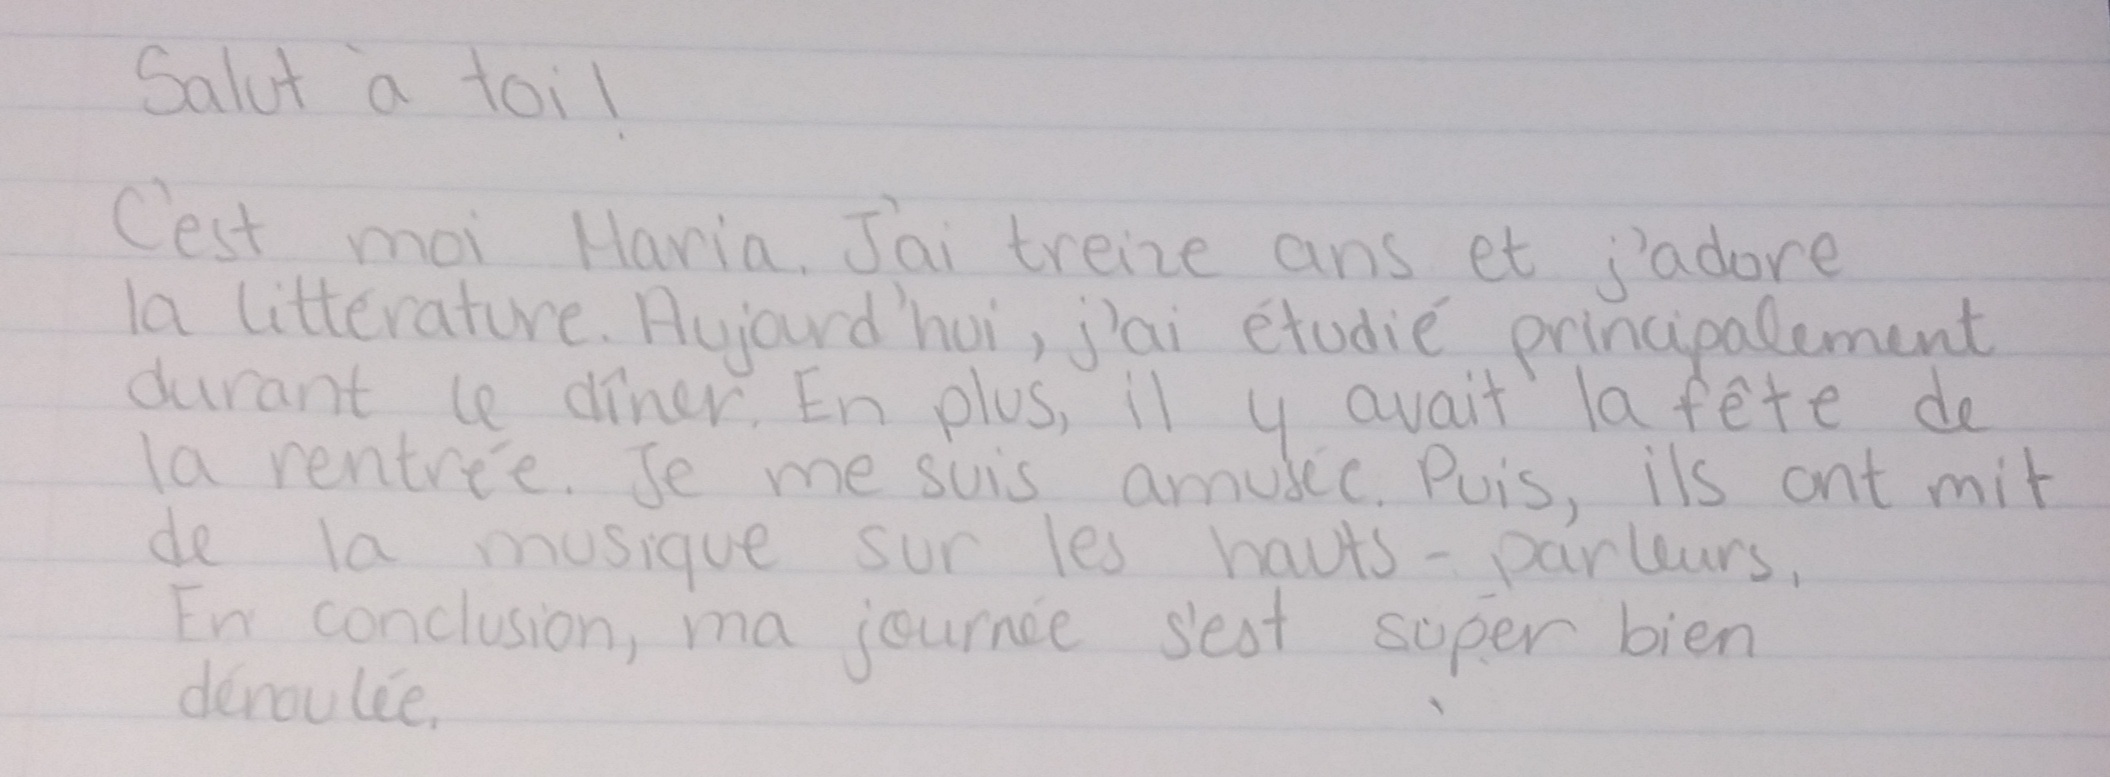 Salut à toi!
C'est moi Maria. J'ai treize ans et j'adore
la littérature. Aujourd'hui, j'ai étudié principalement
durant le dîner. En plus, il y avait la fête de
la rentrée. Je me suis amusée. Puis, ils ont mit
de la musique sur les hauts-parleurs.
En conclusion, ma journée s'est super bien
déroulée.